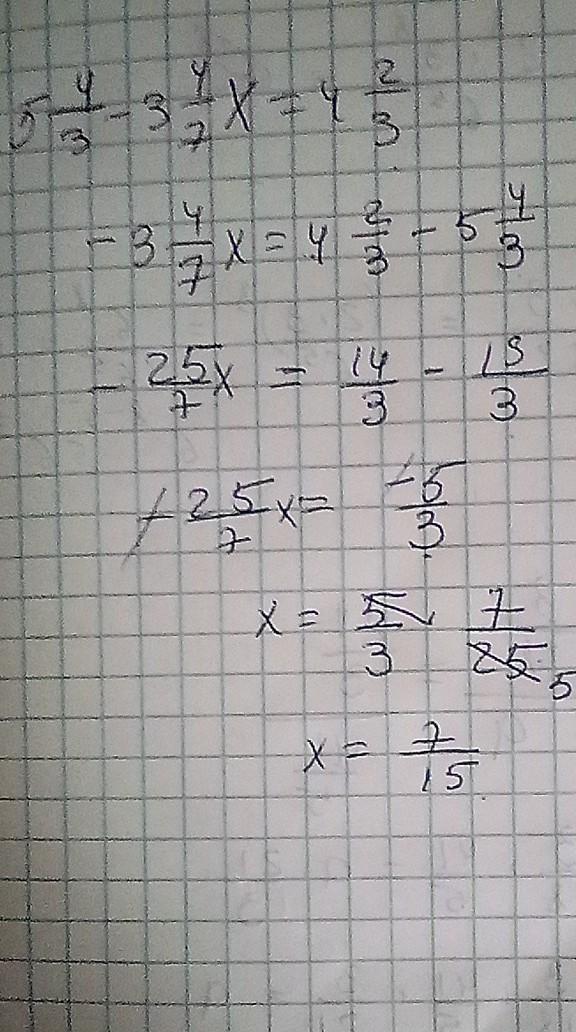 5 4/3 - 3 4/7 x = 4 2/3
- 3 4/7 x = 4 2/3 - 5 4/3
- 25/7 x = 14/3 - 19/3
- 25/7 x = -5/3
x = 5/3 7/25 5
x = 7/15